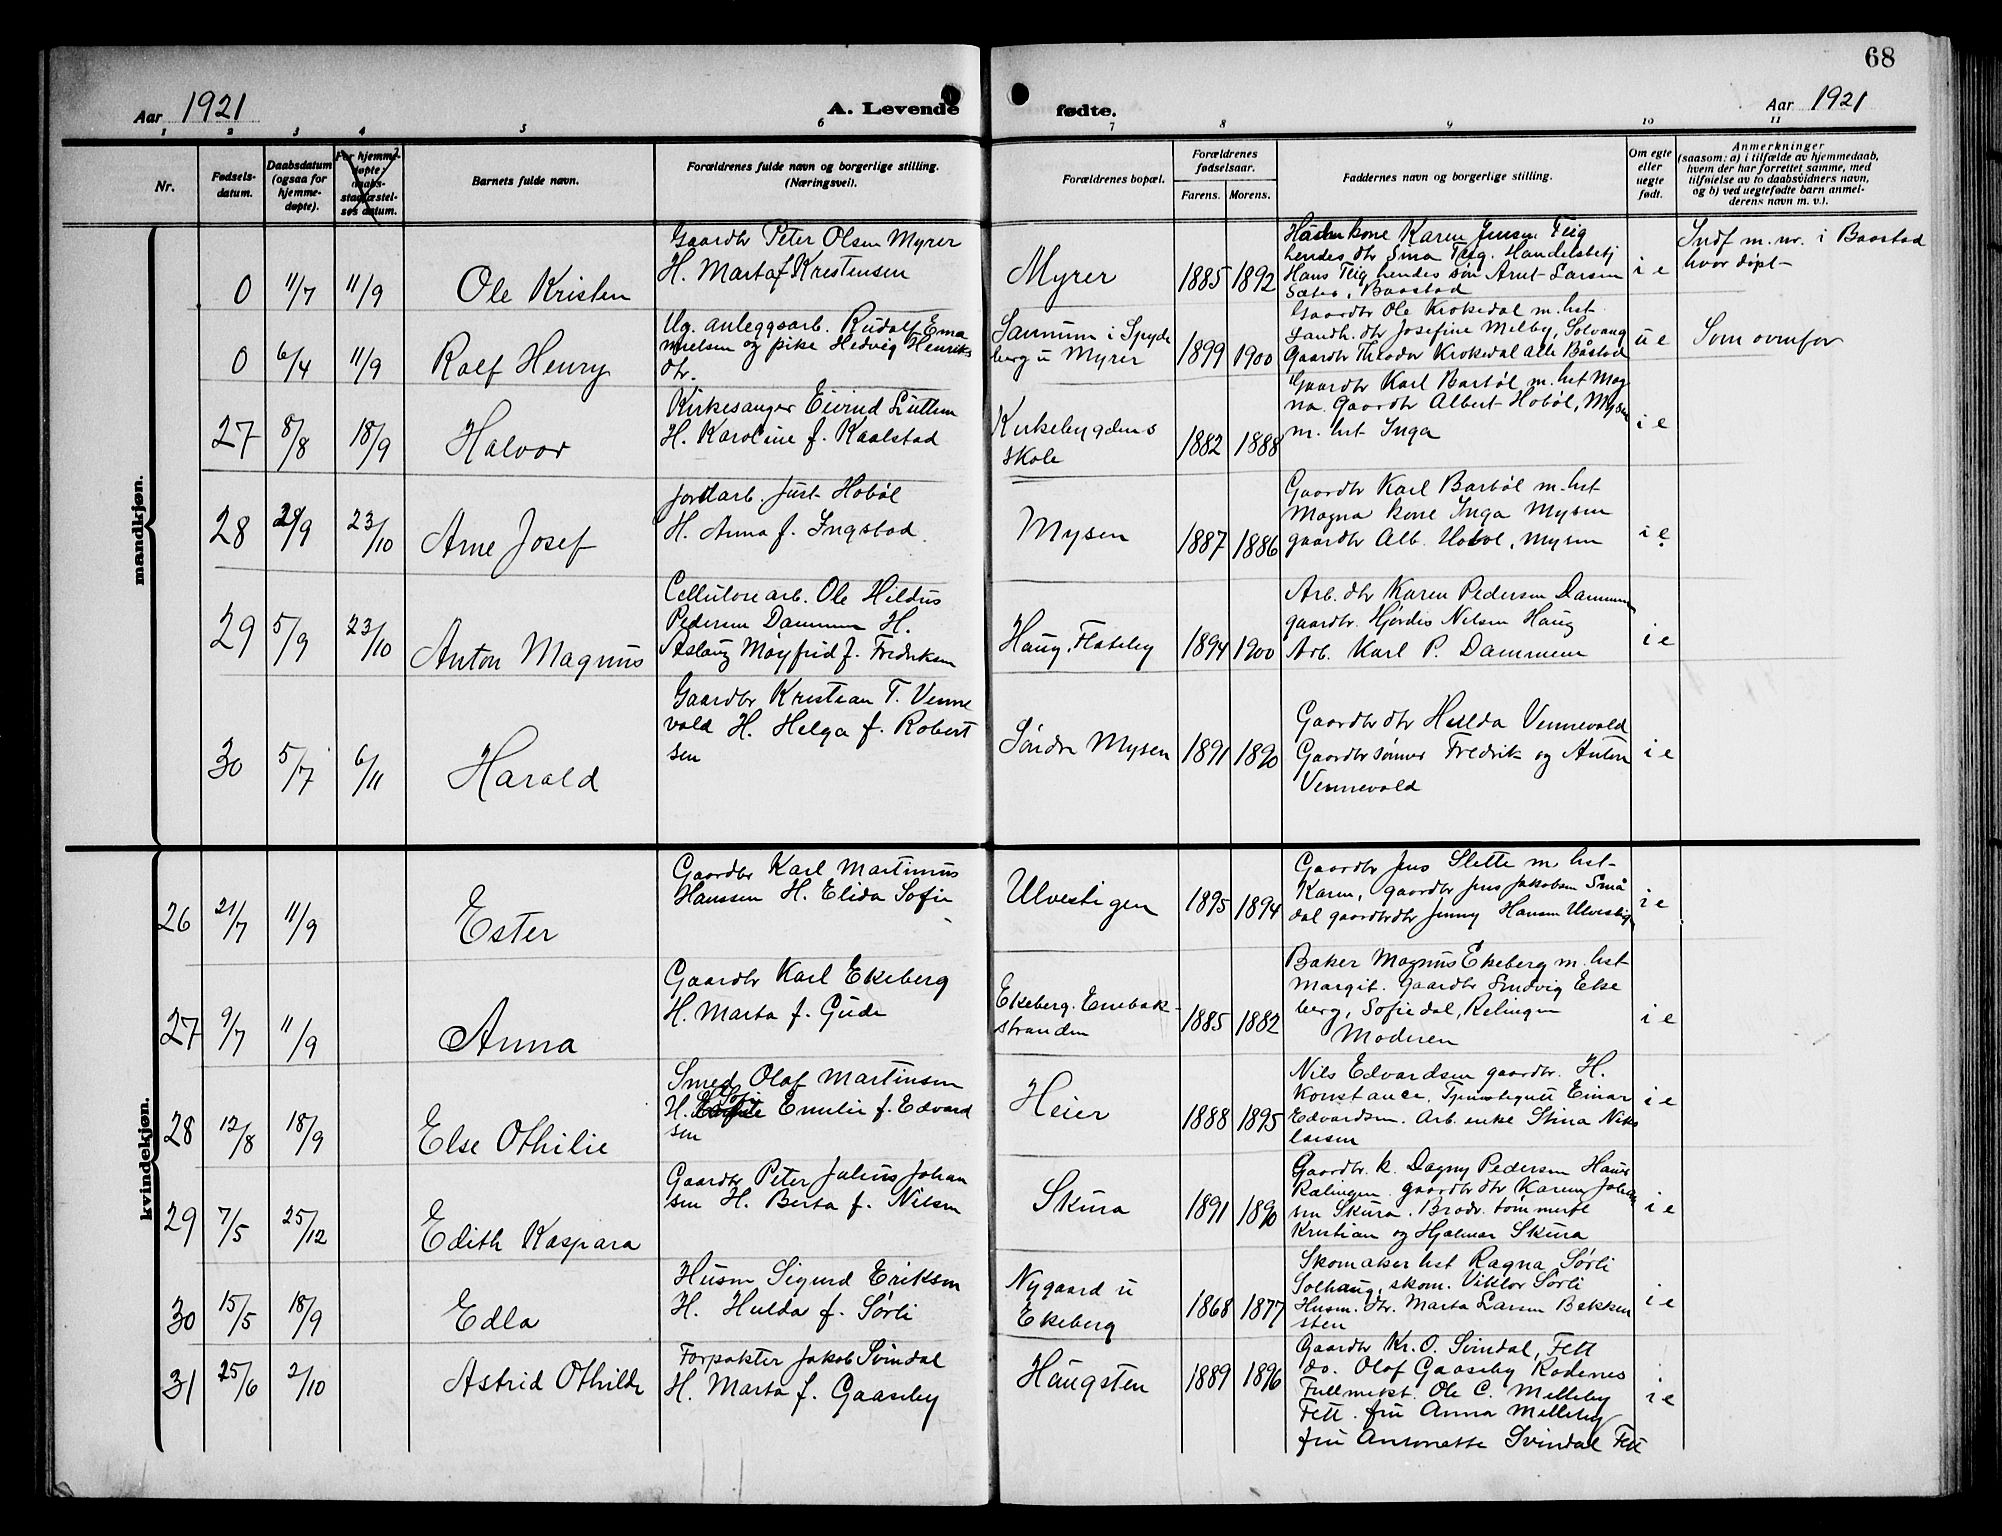 68
Aar 1921
A. Levende fødte.
Aar 1921
1 2 3 4 5 6 7 8 9 10 11
Nr.
Fødsels-
datum.
Daabsdatum
(ogsaa for
hjemme-
døpte).
For hjemme-
døpte:
daabs-
stadfæstel-
ses datum.
Barnets fulde navn.
Forældrenes fulde navn og borgerlige stilling.
(Næringsvei).
Forældrenes bopæl.
Forældrenes
fødselsaar.
Farens. Morens.
Faddernes navn og borgerlige stilling.
Om egte
eller
uegte
født.
Anmerkninger
(saasom: a) i tilfælde av hjemmedaab,
hvem der har forrettet samme, med
tilføielse av to daabsvidners navn,
og b) ved uegtefødte barn anmel-
derens navn m. v.).
mandkjøn.
0 11/7 11/9 Ole Kristen
Gaardbr Peter Olsen Myrer
H. Marta f Kristensen
Myrer 1885 1892
kone Karen Jensen Teig
hendes dtr Sina Teig. Handelsbetj
Hans Teig hendes søn Arnt Larsen
Sæter, Baastad
i e
Indf m. nr. i Baastad
hvor døpt
0 6/4 11/9 Rolf Henry
Ug. anleggsarb. Rudolf Ema
nuelsen og pike Hedvig Henriks
dtr.
i Spyde
berg u Myrer
1899 1900
Gaardbr Ole Krokedal m. hst
Landh. dtr Josefine Melby, Solvang
Gaardbr Theodor Krokedal Alle Båstad
u e
Som ovenfor
27 8/8 18/9 Halvor
Kirkesanger Eivind Luttem
H. Karoline f. Kaalstad
Kirkebygdens
skole
1882 1888
Gaardbr Karl Barbøl m. hst Mag
na. Gaardbr Albert Hobøl, Mysen
m. hst Inga
i e
28 29/9 23/10 Arne Josef
Jordarb. Just Hobøl
H. Anna f. Ingstad.
Mysen 1887 1886
Gaardbr Karl Barbøl m. hst
Magna kone Inga Mysen
gaardbr Alb. Hobøl, Mysen
i e
29 5/9 23/10 Anton Magnus
Cellulose arb. Ole Hildus
Pedersen Dammen H.
Aslaug Møyfrid f. Fredriksen
Haug, Flateby 1894 1900
Arb. dtr Karen Pedersen Dammen
gaardbr. Hjørdis Nilsen Haug
Arb. Karl P. Dammen
i e
30 5/7 6/11 Harald
Gaardbr Kristian T. Venne
vold H. Helga f. Robert
sen
Søndre Mysen 1891 1890
Gaardbr dtr Hulda Vennevold
Gaardbr sønner Fredrik og Anton
Vennevold
i e
kvindekjøn.
26 21/7 11/9 Ester
Gaardbr Karl Martinius
Hanssen H. Elida Sofie
Ulvestigen 1895 1894
Gaardbr Jens Slette m hst
Karen, gaardbr Jens Jakobsen Små
dal gaardbrdtr Jenny Hansen Ulvestig
i e
27 9/7 11/9 Anna
Gaardbr Karl Ekeberg
H. Marta f. Gude
Ekeberg. Enebak
stranden
1885 1882
Baker Magnus Ekeberg m. hst
Margit. Gaardbr Ludvig Eke
berg, Sofiedal, Rælingen
Moderen
i e
28 12/8 18/9 Else Othilie
Smed Olaf Martinsen
H. Emilie f. Edvard
sen
Heier 1888 1895
Nils Edvardsen gaardbr. H.
Konstance, Einar
Edvardsen. Arb. enke Stina Niko
laisen
i e
29 7/5 25/12 Edith Kaspara
Gaardbr Peter Julius Johan
sen H. Berta f. Nilsen
Skura 1891 1890
Gaardbr. k. Dagny Pedersen Haug
Rælingen gaardbr dtr Karen Johan
sen Skura. Brødr. tømmerfl
Kristian og Hjalmar Skura
i e
30 15/5 18/9 Edla
Husm Sigurd Eriksen
H. Hulda f. Sørli
Nygaard u
Ekeberg
1868 1877
Skomaker hst Ragna Sørli
Solhaug, skom. Viktor Sørli
Husm. dtr. Marta Larsen Bekken
sten
i e
31 25/6 2/10 Astrid Othilde
Forpakter Jakob Svindal
H. Marta f. Gaaseby
Haugsten 1889 1896
Gaardbr Kr. O. Svindal, Fett
do. Olaf Gaaseby Rødenes
Fullmekt. Ole C. Melleby
Fett. fru Anna Melleby
fru Antonette Svindal Fett
i e